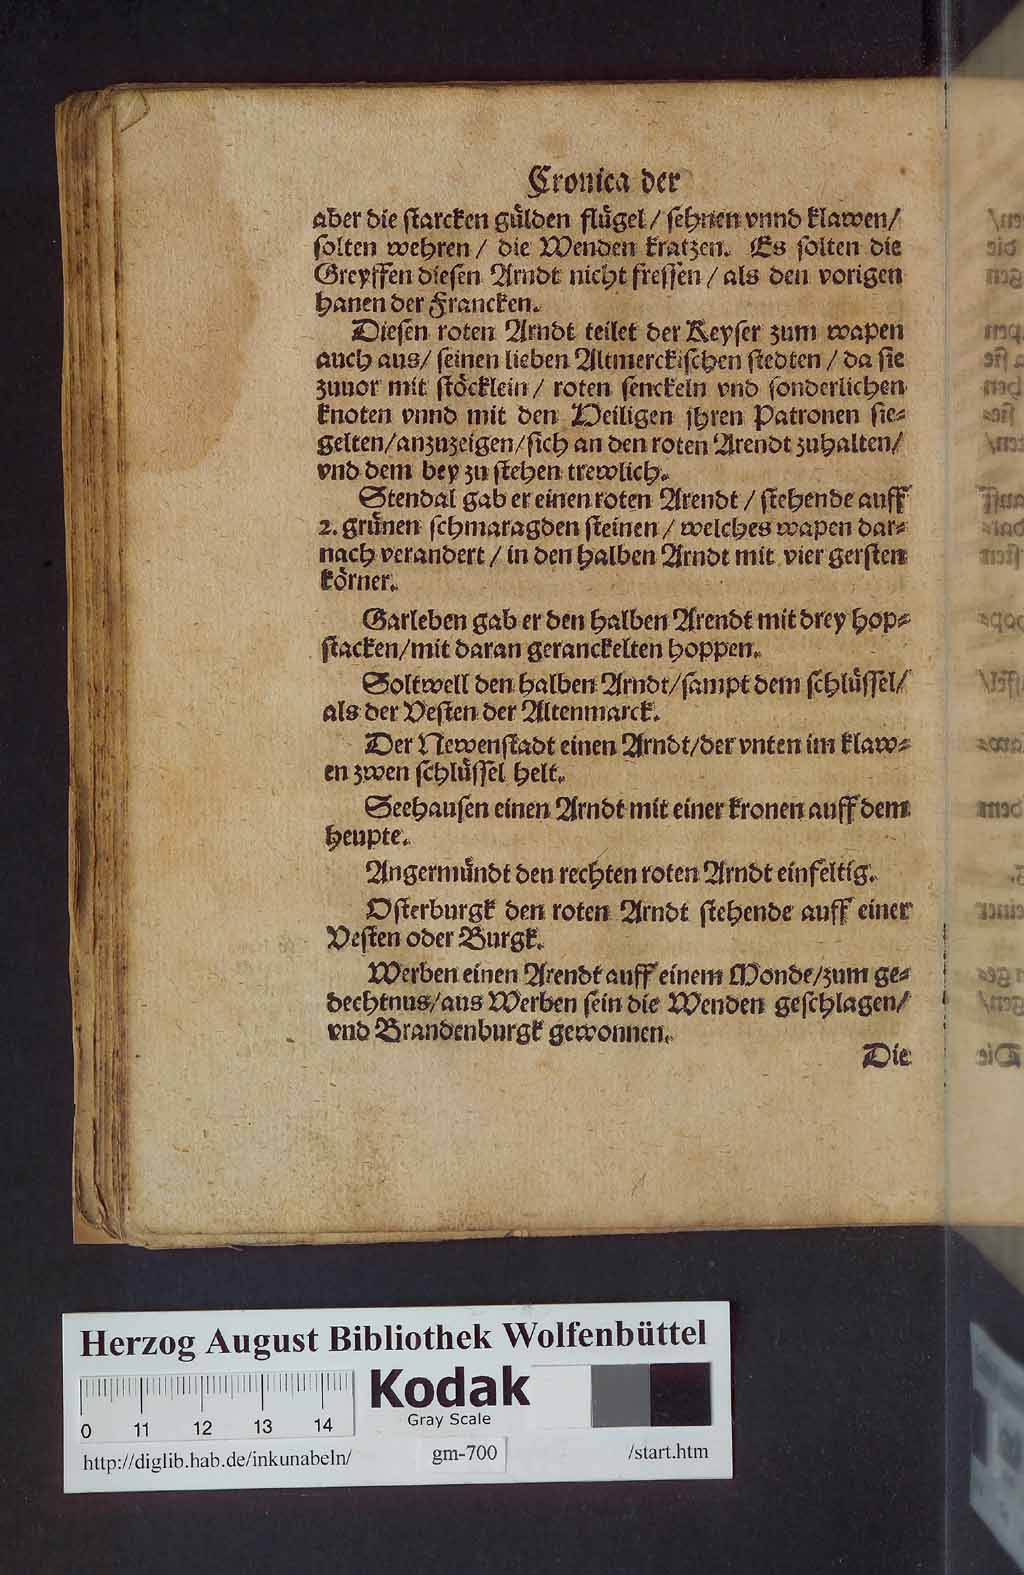 Cronica der
aber die starcken gülden flügel / sehnen vnnd klawen/
solten wehren / die Wenden kratzen. Es solten die
Greyffen diesen Arndt nicht fressen / als den vorigen
hanen der Francken.
Diesen roten Arndt teilet der Keyser zum wapen
auch aus/ seinen lieben Altmerckischen stedten / da sie
zuuor mit stöcklein / roten senckeln vnd sonderlichen
knoten vnnd mit den Heiligen jhren Patronen sie⸗
gelten/anzuzeigen/sich an den roten Arendt zuhalten/
vnd dem bey zu stehen trewlich.
Stendal gab er einen roten Arendt / stehende auff
2. grünen schmaragden steinen / welches wapen dar⸗
nach verandert / in den halben Arndt mit vier gersten
körner.
Garleben gab er den halben Arendt mit drey hop⸗
stacken/mit daran geranckelten hoppen.
Soltwell den halben Arndt/sampt dem schlüssel/
als der Vesten der Altenmarck.
Der Newenstadt einen Arndt/der vnten im klaw⸗
en zwen schlüssel helt.
Seehausen einen Arndt mit einer kronen auff dem
heupte.
Angermündt den rechten roten Arndt einfeltig.
Osterburgk den roten Arndt stehende auff einer
Vesten oder Burgk.
Werben einen Arendt auff einem Monde/zum ge⸗
dechtnus/aus Werben sein die Wenden geschlagen/
vnd Brandenburgk gewonnen.
Die
Herzog August Bibliothek Wolfenbüttel
0 11 12 13 14
Kodak
Gray Scale
http://diglib.hab.de/inkunabeln/ gm-700 /start.htm